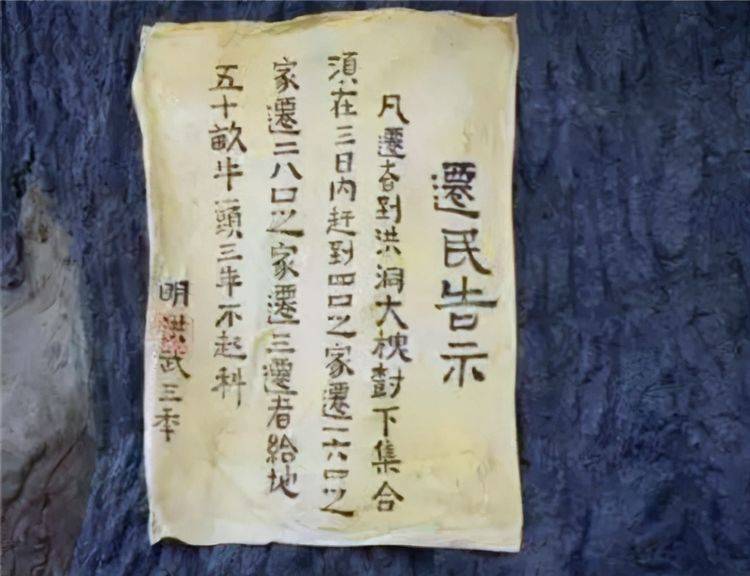 遷民告示
凡遷者到洪洞大槐樹下集合
須在三日内赶到四口之家遷一六口之
家遷二八口之家遷三遷者給地
五十畝牛一頭三年不起科
明洪武三年